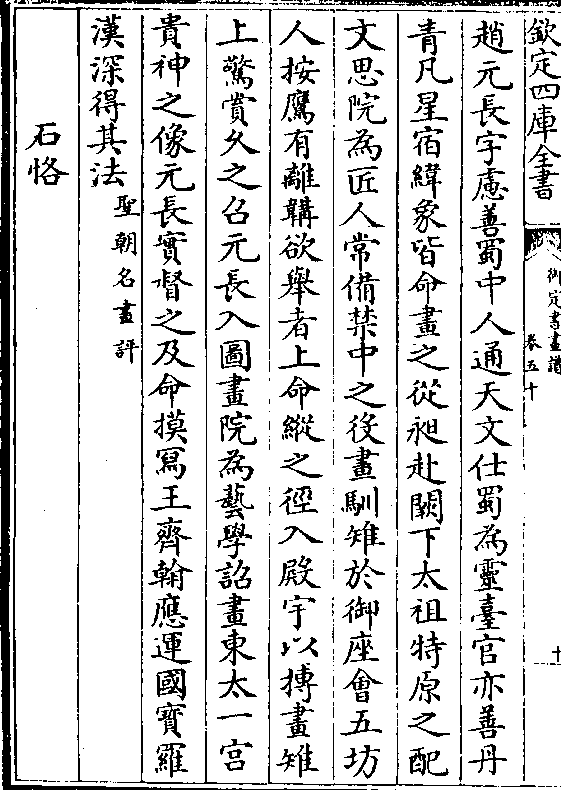 欽定四庫全書
御定書畫譜
卷五十
十
趙元長字慮善蜀中人通天文仕蜀為靈臺官亦善丹
青凡星宿緯象皆命畫之從昶赴闕下太祖特原之配
文思院為匠人常備禁中之役畫馴雉於御座會五坊
人按鷹有離韝欲舉者上命縱之徑入殿宇以搏畫雉
上驚賞久之召元長入圖畫院為藝學詔畫東太一宫
貴神之像元長實督之及命摸寫王齊翰應運國寶羅
漢深得其法聖朝名畫評
石恪